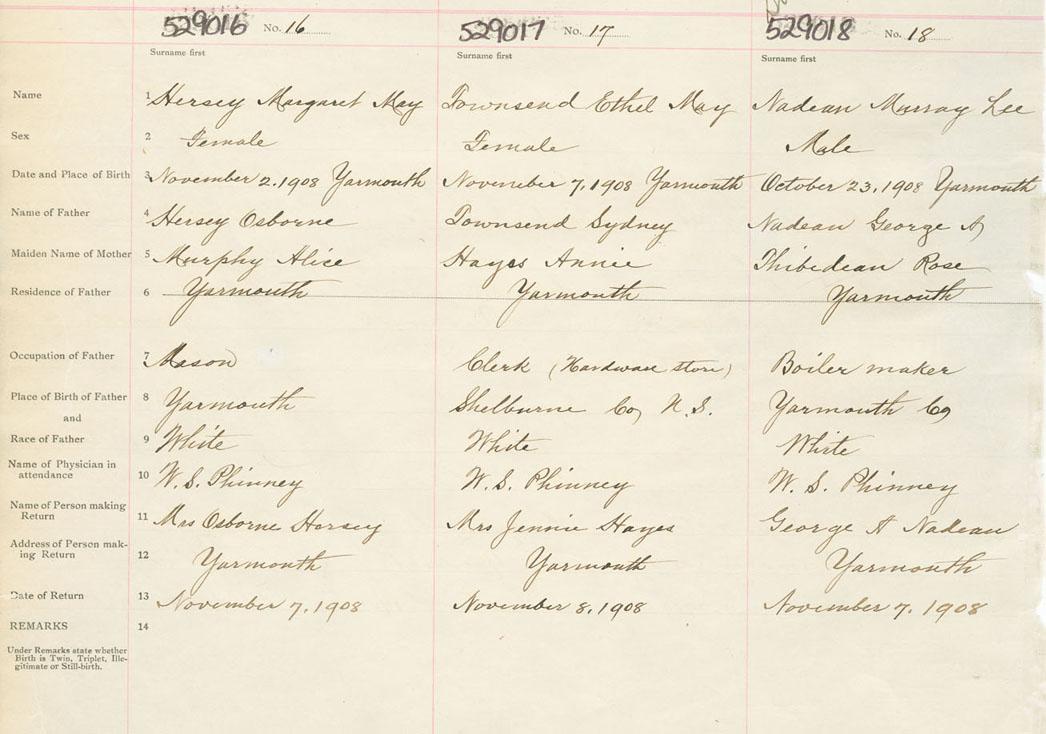 529016 No. 16 529017 No. 17 529018 No. 18
Surname first Surname first Surname first
Name 1 Hersey Margaret May Townsend Ethel May Nadean Murray Lee
Sex 2 Female Female Male
Date and Place of Birth 3 November 2. 1908 Yarmouth November 7, 1908 Yarmouth October 23, 1908 Yarmouth
Name of Father 4 Hersey Osborne Townsend Sydney Nadean George A
Maiden Name of Mother 5 Murphy Alice Hayes Annie Thibedean Rose
Residence of Father 6 Yarmouth Yarmouth Yarmouth
Occupation of Father 7 Mason Clerk (Hardware store) Boiler maker
Place of Birth of Father 8 Yarmouth Shelburne Co, N.S. Yarmouth Co
and
Race of Father 9 White White White
Name of Physician in
attendance 10 W. S. Phinney W. S. Phinney W. S. Phinney
Name of Person making
Return 11 Mrs Osborne Hersey Mrs Jennie Hayes George A Nadeau
Address of Person mak-
ing Return 12 Yarmouth Yarmouth Yarmouth
Date of Return 13 November 7, 1908 November 8, 1908 November 7, 1908
REMARKS 14
Under Remarks state whether
Birth is Twin, Triplet, Ille-
gitimate or Still-birth.